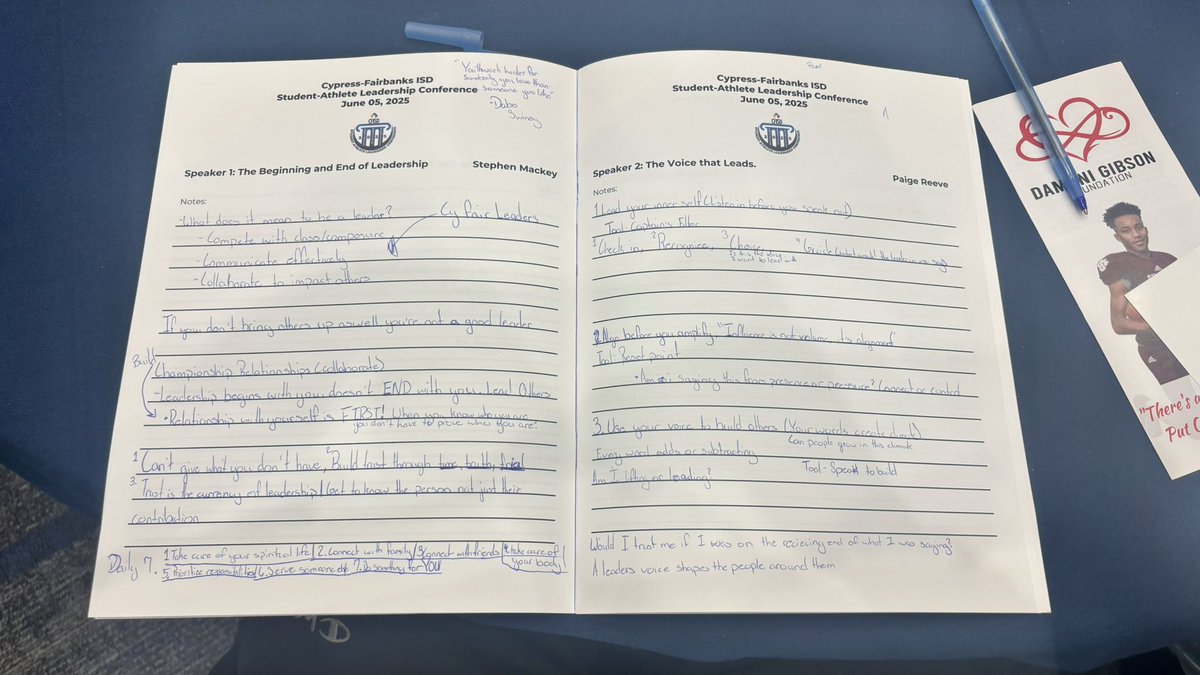 Cypress-Fairbanks ISD
Student-Athlete Leadership Conference
June 05, 2025
"You'll work harder for
somebody you love than
someone you like"
-Dabo
Swiney
CFISD
Speaker 1: The Beginning and End of Leadership
Stephen Mackey
Notes:
-What does it mean to be a leader?
Cy Fair Leaders
-Compete with class/composure
-Communicate effectively
-Collaborate to impact others
If you don't bring others up aswell you're not a good leader
Build
Championship Relationships (collaborate)
-Leadership begins with you doesn't END with you. Lead Others
•Relationship with yourself is FIRST! When you know who you are
you don't have to prove who you are!
1. Can't give what you don't have, 2. Build trust through time, truth,
3. Trust is the currency of leadership/Get to know the person not just their
contribution
Daily 7.
1. Take care of your spiritual life/ 2. Connect with family/ 3. Connect with friends 4. take care of
your body
5. Prioritize responsibilities/ 6. Serve someone 7. Do something for YOU
Cypress-Fairbanks ISD
Student-Athlete Leadership Conference
June 05, 2025
Speaker 2: The Voice that Leads.
Paige Reeve
Notes:
1. Lead your inner self (Listen in before you speak out)
Tool: Captain's Filter
1. Check in, 2. Recognize, 3. Choice 4. Guide (what would the leader in me say)
Is this the voice
I want to lead with
2. Align before you amplify "Influence is not volume, its alignment"
Tool: Reset point
•Am i saying this from presence or pressure? Connect or control
3. Use your voice to build others (Your words create)
Can people grow in this climate
Every word adds or subtracting
Tool - Speak to build
Am I lifting or leading?
Would I trust me if I was on the recieving end of what I was saying?
A leaders voice shapes the people around them
GIBSON
FOUNDATION
"There's a
Put